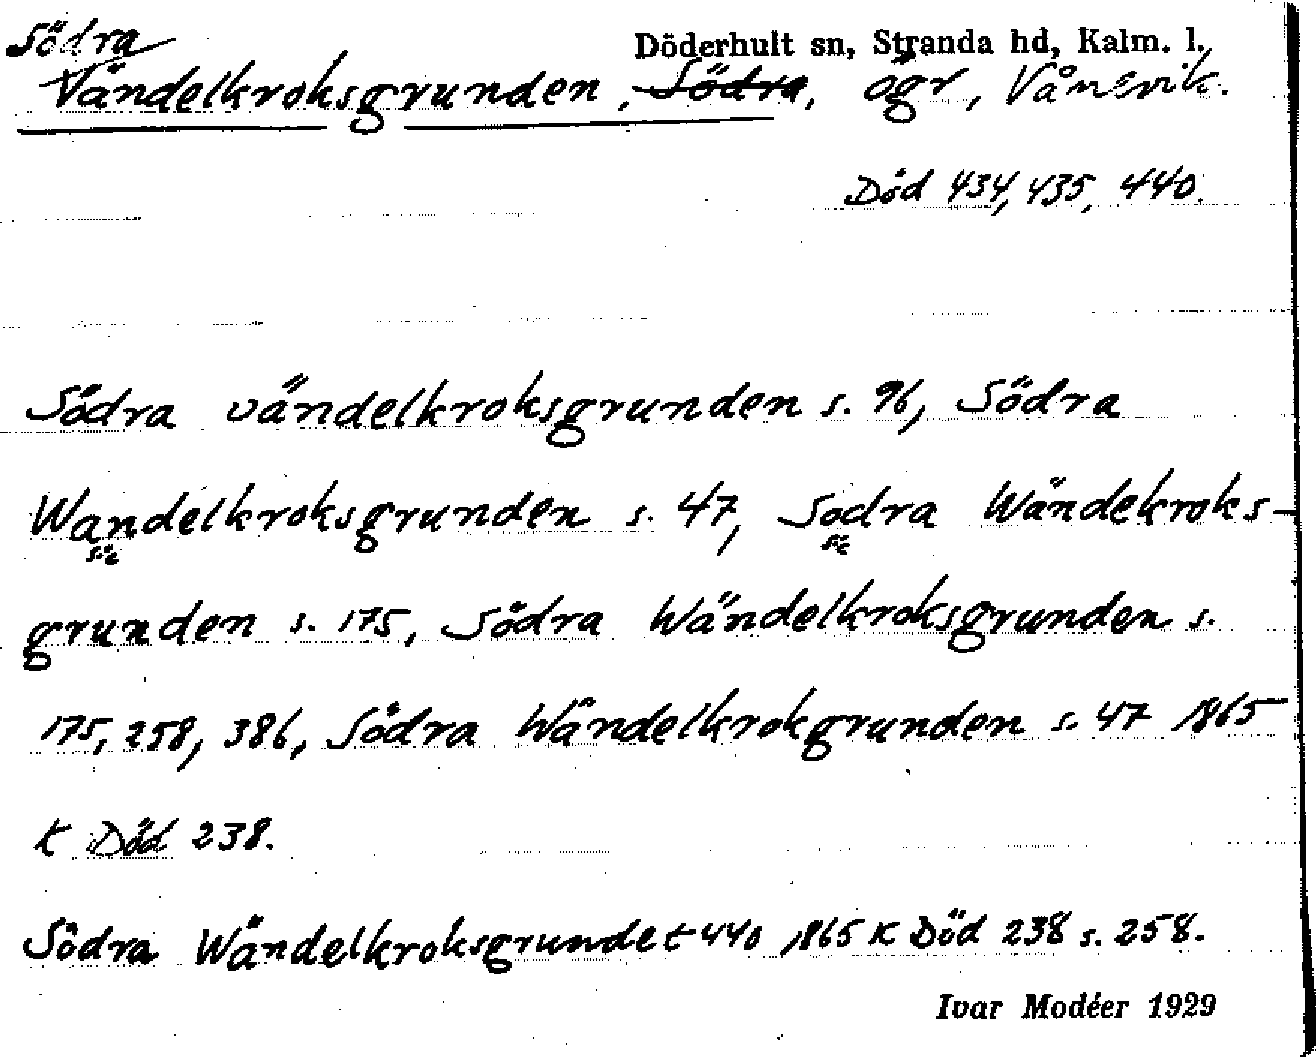 Södra Döderhult sn, Stranda hd, Kalm. l.
Vändelkroksgrunden, Södra, ögr, Vånevik.
Död 434, 435, 440.
Södra vändelkroksgrunden s. 96, Södra
Wandelkroksgrunden s. 47, Sodra Wändekroks-
sic sic
grunden s. 175, Södra Wändelkroksgrunden s.
175, 258, 386, Södra Wändelkrokgrunden s. 47 1865
K Död 238.
Södra Wändelkroksgrundet 440 1865 K Död 238 s. 258.
Ivar Modéer 1929